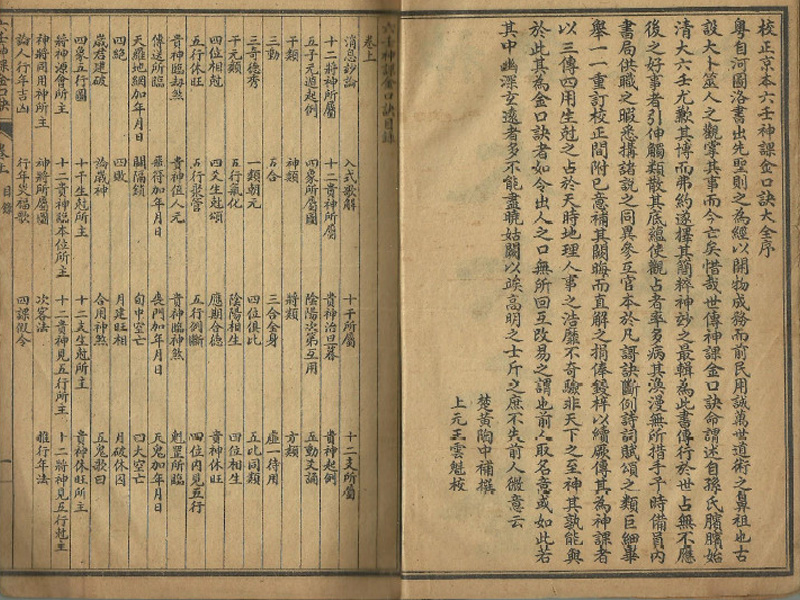 校正京本六壬神課金口訣大全序
粵自河圖洛書出先聖則之為經以開物成務而前民用誠萬世道術之鼻祖也古
設大卜筮人之觀掌其事而今亡矣惜哉世傳神課金口訣命謂述自孫氏臏臏始
清大六壬尤歉其博而弗約遂擇其簡粹神妙之最輯為此書傳行於世占無不應
後之好事者引伸觸類散其底蘊使觀占者率多病其渙漫無所措手予時備員內
書局供職之暇悉搆諸說之同異參互官本於凡謌訣斷例詩詞賦頌之類巨細畢
舉一一重訂校正間附己意補其闕晦而直解之捐俸鋟梓以續厥傳其為神課者
以三傳四用生尅之占於天時地理人事之浩靡不奇驗非天下之至神其孰能與
於此其為金口訣者如令出人之口無所回互改易之謂也前人取名意或如此若
其中幽深玄遠者多不能盡曉姑闕以竢高明之士斤之庶不失前人微意云
楚黃陶中補撰
上元王雲魁校
六壬神課金口訣目錄
卷上
消息妙論 入式歌解 十干所屬 十二支所屬
十二將神所屬 十二貴神所屬 貴神治旦暮 貴神起例
五子元遁起例 四象所屬圖 陰陽次第互用 五動爻謌
干類 神類 將類 方類
三動 五合 三合金身 虛一待用
三奇德秀 一類朝元 四位俱比 五比同類
干元類 五行氣化 陰陽相生 四位相生
四位相尅 四爻生尅頌 應期合德 貴神休旺
五行休旺 五行聚管 五行倒斷 四位內見五行
貴神臨刼煞 貴神值人元 貴神臨神煞 魁罡所臨
傳送所臨 羅得加年月日 喪門加年月日 天鬼加年月日
天羅地網加年月日 關隔鎖 旬中空亡 四大空亡
四絕 四敗 月建旺相 月破休囚
歲君建破 論歲神 合用神煞 五鬼歌曰
四象五行圖 十干生尅所主 十二支生尅所主 貴神休旺所主
將神源會所主 十二貴神臨本位所主 十二貴神見五行所主 十二將神見五行尅主
神將同用神所主 神將所屬圖 次客法 推行年法
論人行年吉凶 行年災福歌 四課假令
六壬神課金口訣 卷上 目錄 一